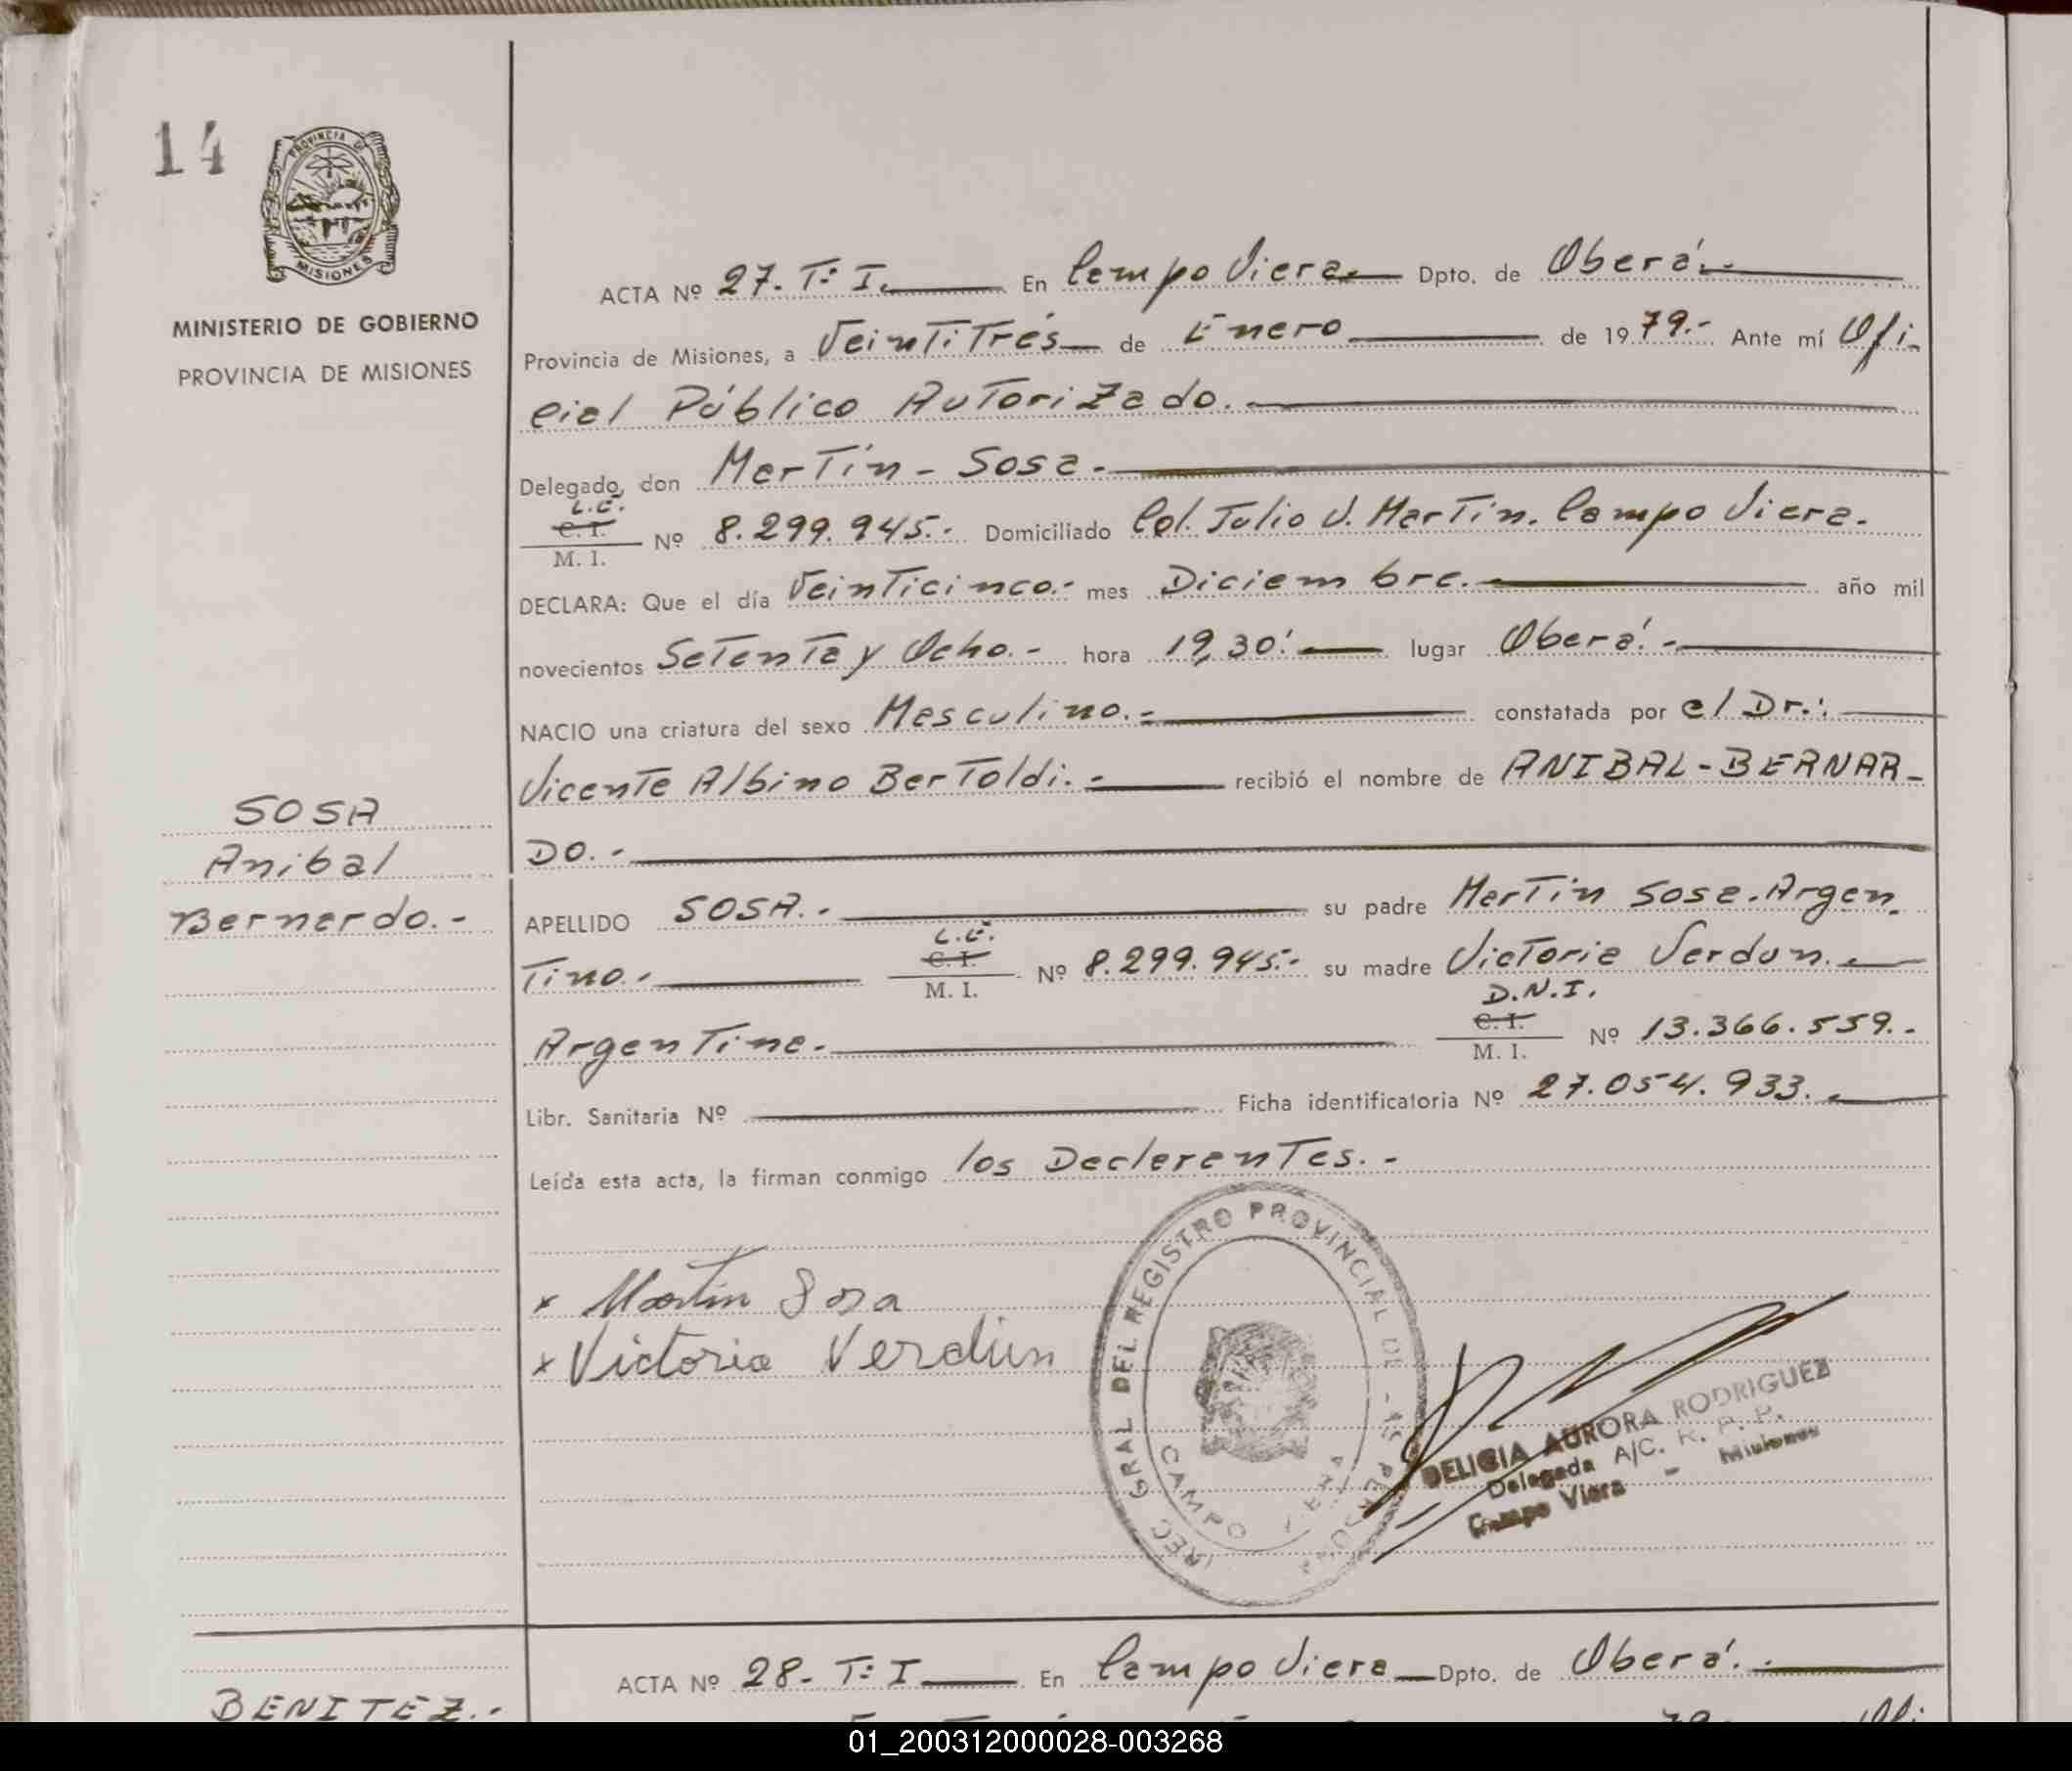 14
PROVINCIA DE
MISIONES
MINISTERIO DE GOBIERNO
PROVINCIA DE MISIONES
ACTA Nº 27. Tº I. En Campo Viera. Dpto. de Oberá.-
Provincia de Misiones, a Veintitrés de Enero de 1979.- Ante mí Ofi-
cial Público Autorizado.-
Delegado, don Martín - Sosa.-
L.E.
C. I.
M. I.
Nº 8.299.945.- Domiciliado Col. Julio U. Martín. Campo Viera.
DECLARA: Que el día Veinticinco.- mes Diciembre.- año mil
novecientos Setenta y Ocho.- hora 19,30' lugar Oberá.-
NACIO una criatura del sexo Masculino.- constatada por el Dr.:
Vicente Albino Bertoldi.- recibió el nombre de ANIBAL - BERNAR-
DO.-
SOSA
Anibal
Bernardo.-
APELLIDO SOSA.- su padre Martín Sosa. Argen-
L.E.
tino.- C. I. Nº 8.299.945.- su madre Victoria Verdun.-
M. I.
D.N.I.
Argentina.- C. I. Nº 13.366.559.-
M. I.
Libr. Sanitaria Nº Ficha identificatoria Nº 27.054.933.-
Leída esta acta, la firman conmigo los Declarantes.-
x Martin Sosa
x Victoria Verdun
GRAL DEL REGISTRO PROVINCIAL DE
CAMPO VIERA
DELICIA AURORA RODRIGUEZ
Delegada A/C. R. P. P.
Campo Viera - Misiones
ACTA Nº 28- Tº I En Campo Viera Dpto. de Oberá.-
BENITEZ.-
01_200312000028-003268